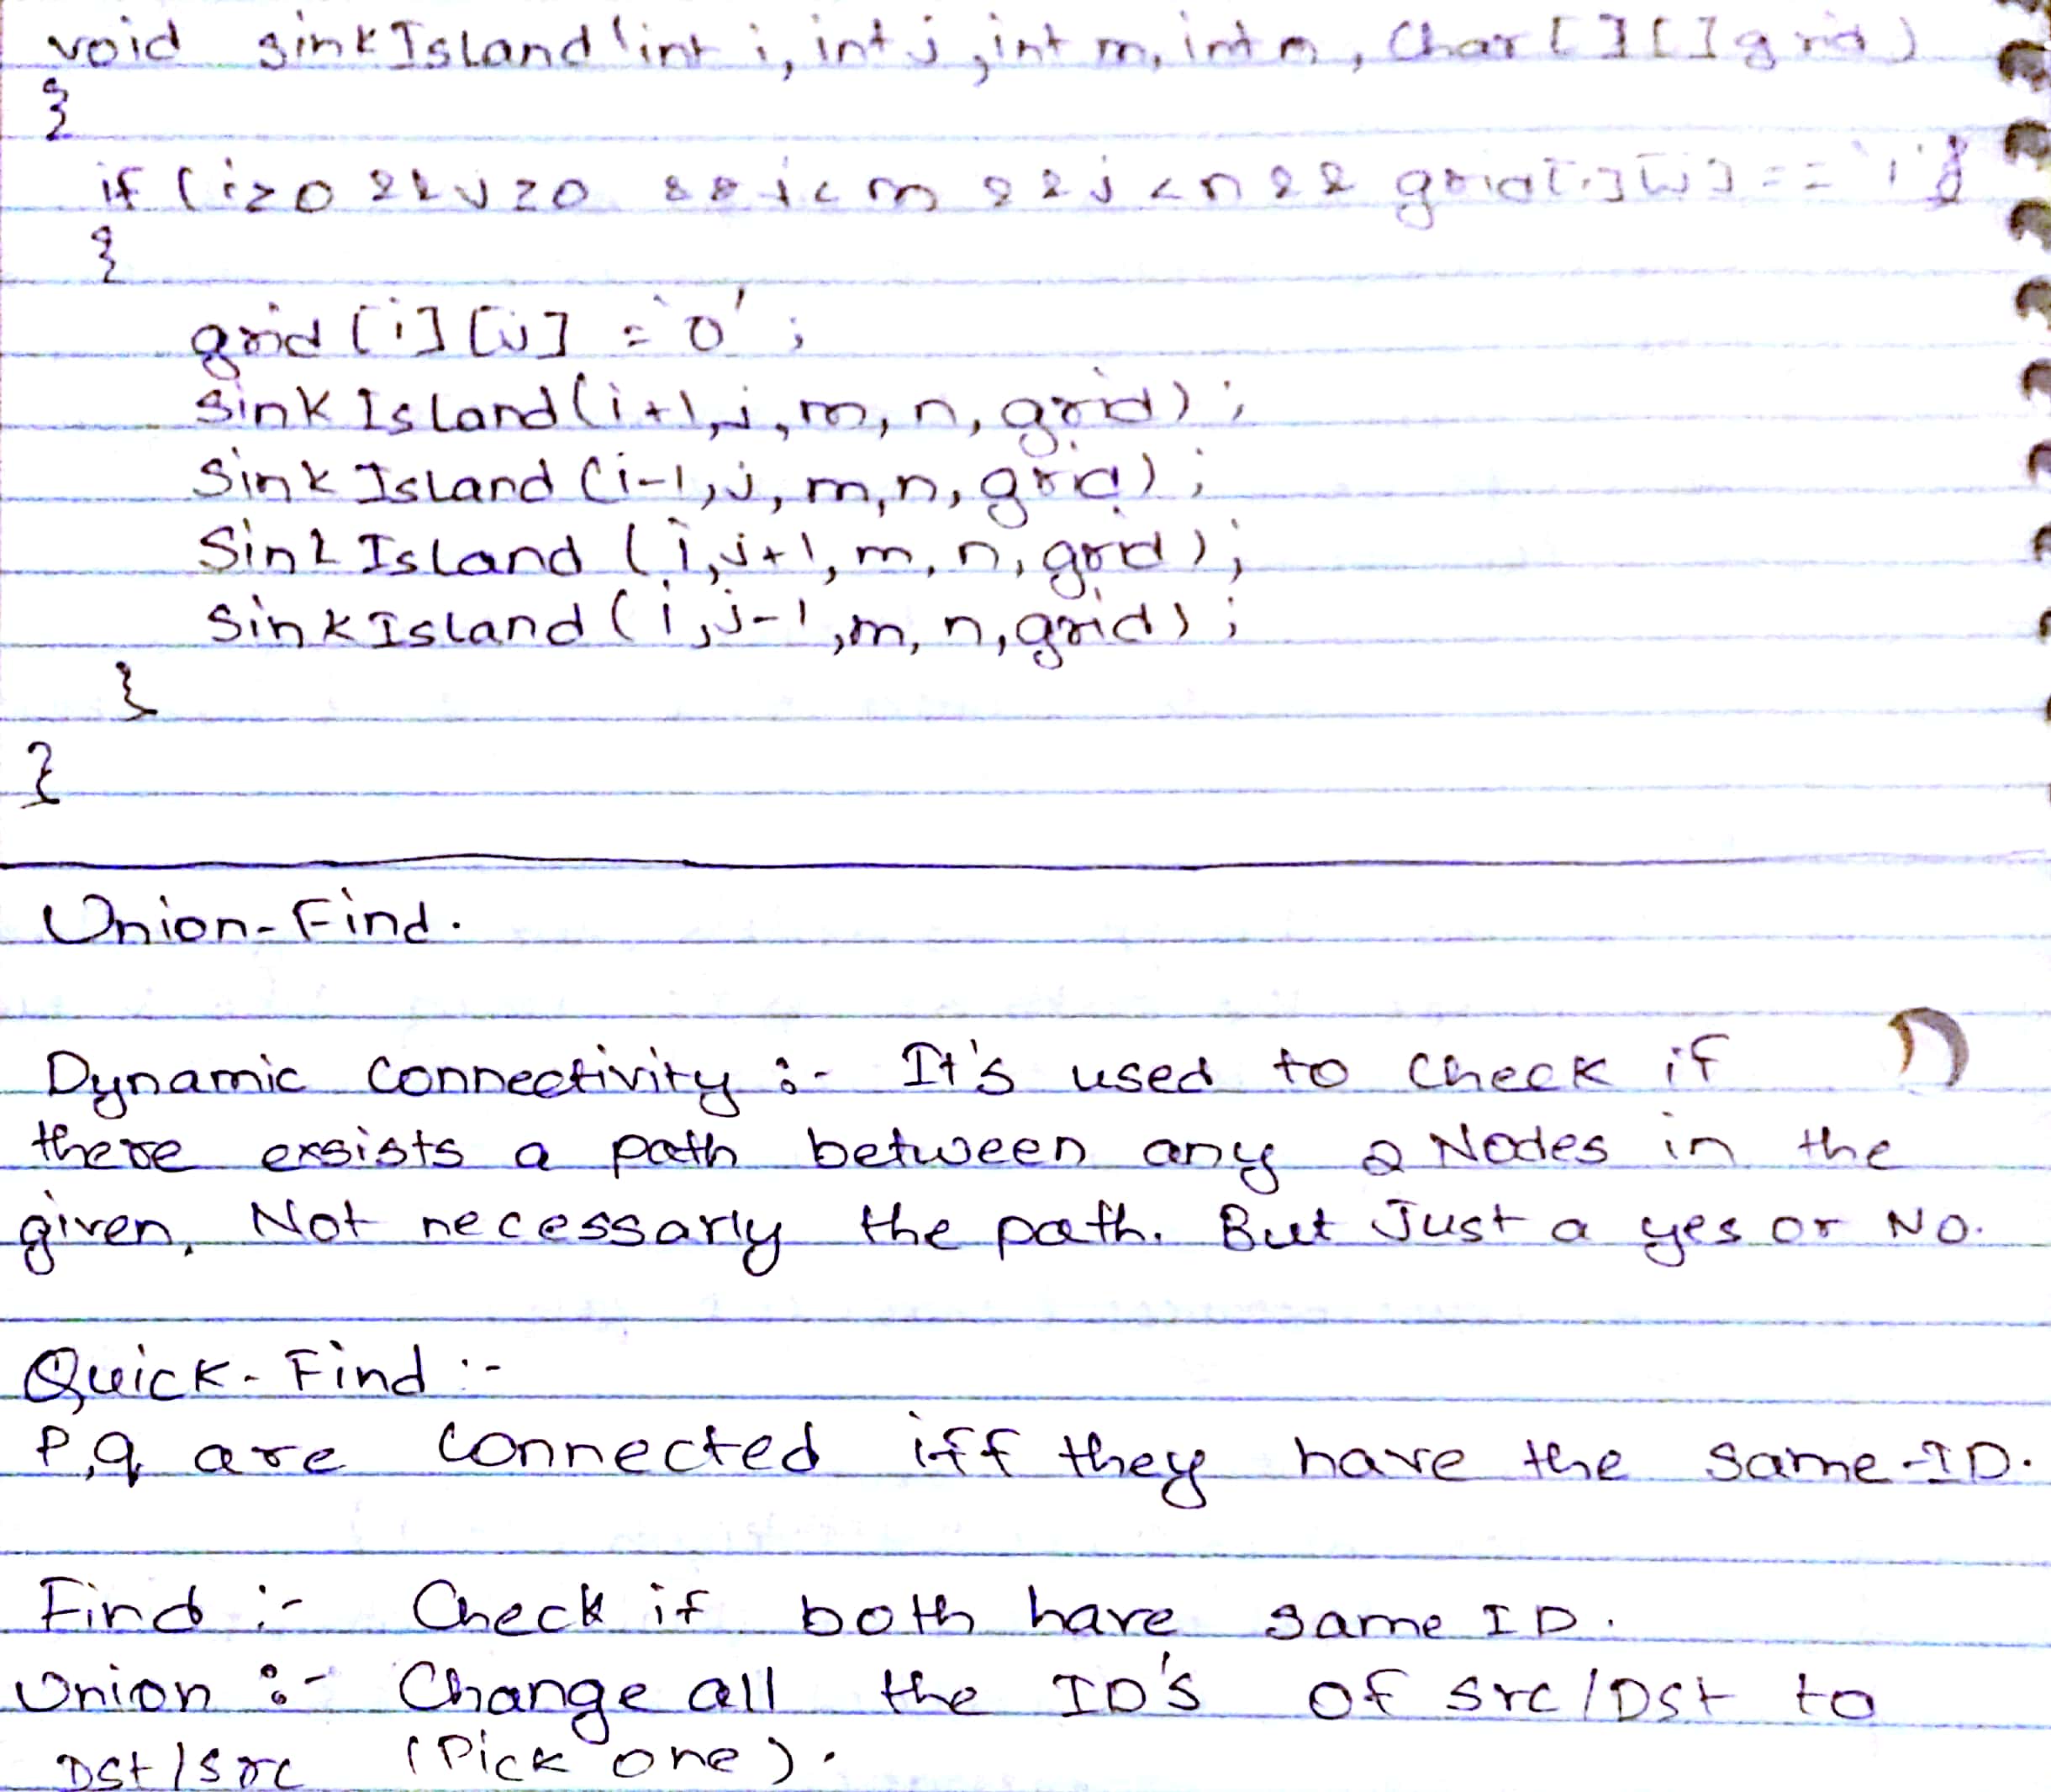 void sinkIsland(int i, int j, int m, int n, Char[][]grid)
{
if (i≥0 && j≥0 && i<m && j<n && grid[i][j]=='1')
{
grid[i][j] = '0';
sinkIsland(i+1, j, m, n, grid);
SinkIsland(i-1, j, m, n, grid);
SinkIsland(i, j+1, m, n, grid);
SinkIsland(i, j-1, m, n, grid);
}
}
Union-Find.
Dynamic Connectivity :- It's used to check if
there exsists a path between any 2 Nodes in the
given, Not necessarly the path. But Just a yes or NO.
Quick-Find :-
P,q are Connected iff they have the same-ID.
Find :- Check if both have same ID.
Union :- Change all the ID's of src/Dst to
Dst/src (Pick one).